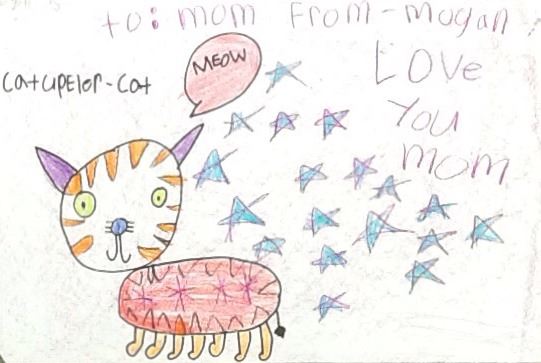 to: mom From-mogan
Love
You
mom
catupelor-cat
MEOW